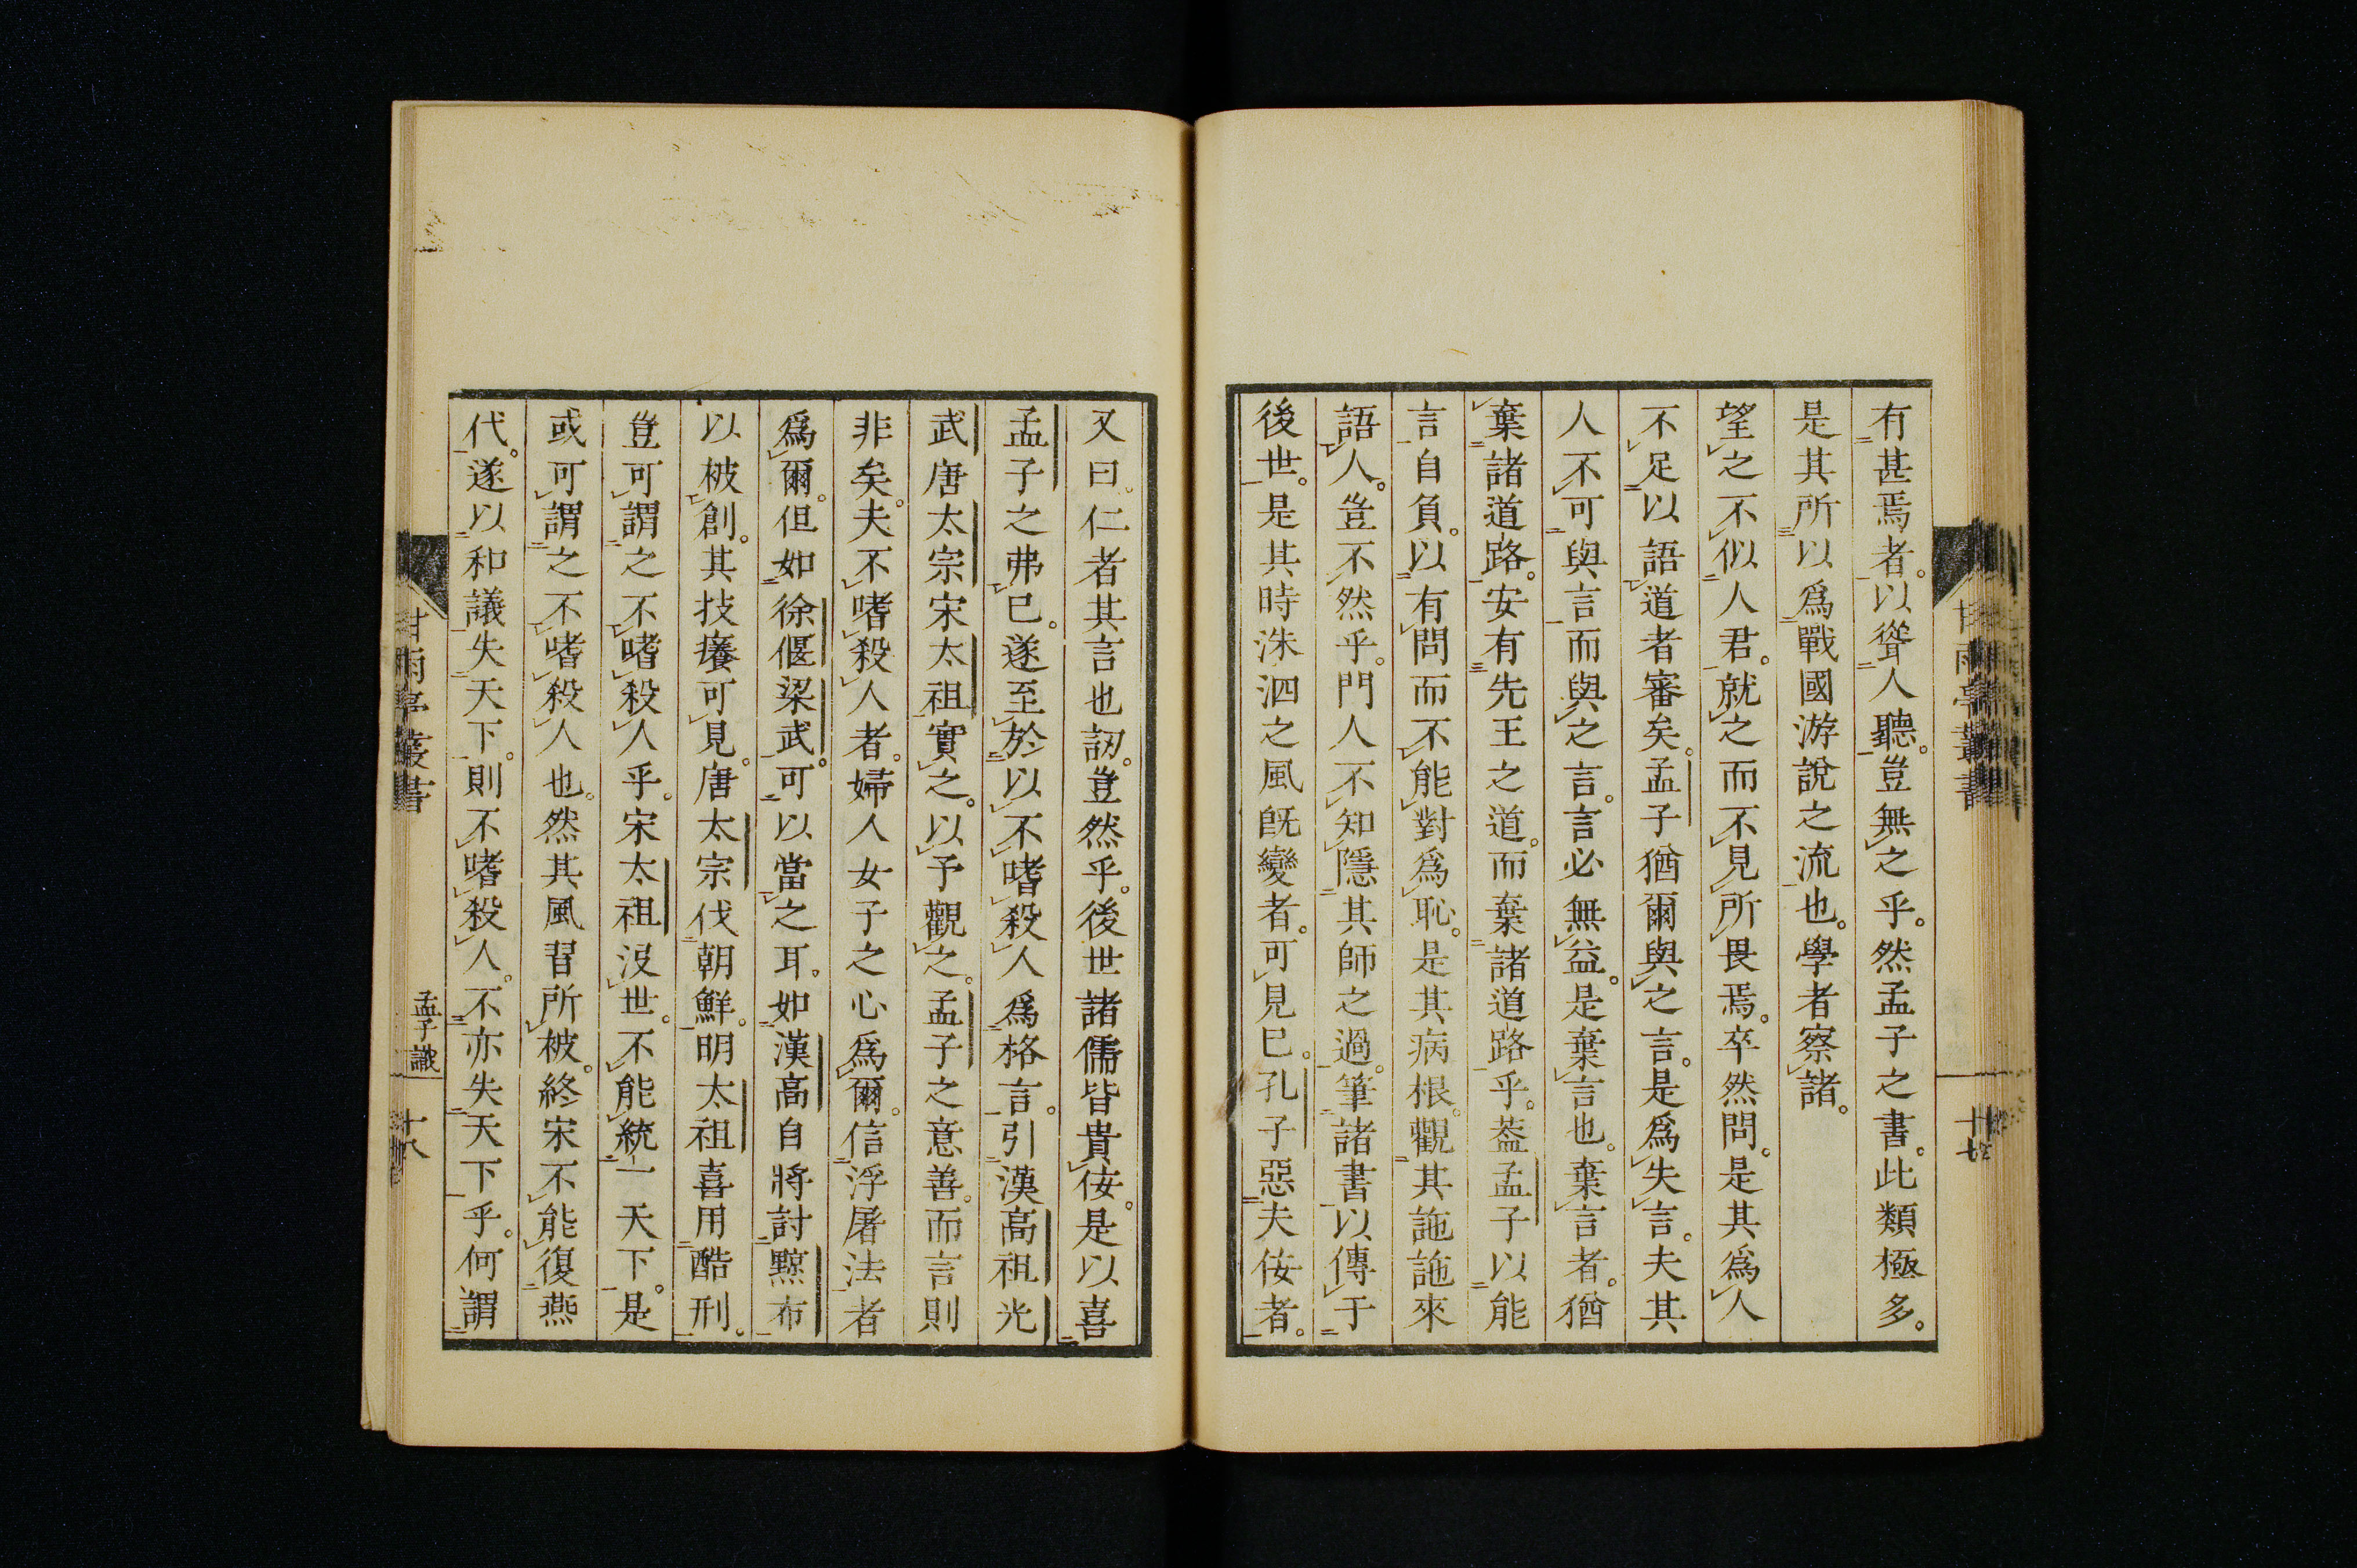 有甚焉者。以聳人聽。豈無之乎。然孟子之書。此類極多。
是其所以爲戰國游說之流也。學者察諸。
望之不似人君。就之而不見所畏焉。卒然問。是其爲人
不足以語道者審矣。孟子猶爾與之言。是爲失言。夫其
人不可與言而與之言。言必無益。是棄言也。棄言者。猶
棄諸道路。安有先王之道。而棄諸道路乎。蓋孟子以能
言自負。以有問而不能對爲恥。是其病根。觀其訑訑來
語人。豈不然乎。門人不知隱其師之過。筆諸書以傳于
後世。是其時洙泗之風既變者。可見已。孔子惡夫佞者。
十七
又曰。仁者其言也訒。豈然乎。後世諸儒皆貴佞。是以喜
孟子之弗已。遂至於以不嗜殺人爲格言。引漢高祖光
武唐太宗宋太祖實之。以予觀之。孟子之意善。而言則
非矣。夫不嗜殺人者。婦人女子之心爲爾。信浮屠法者
爲爾。但如徐偃梁武。可以當之耳。如漢高自將討黥布
以被創。其技癢可見。唐太宗伐朝鮮。明太祖喜用酷刑。
豈可謂之不嗜殺人乎。宋太祖沒世。不能統一天下。是
或可謂之不嗜殺人也。然其風習所被。終宋不能復燕
代。遂以和議失天下。則不嗜殺人。不亦失天下乎。何謂
甘雨亭叢書
孟子識
十八